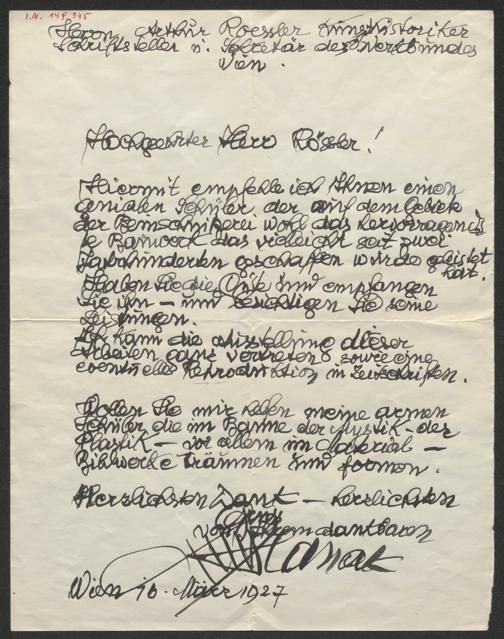 I.N. 149.345
Herrn, Arthur Roessler Kunsthistoriker
Schriftsteller u. Sekretär des Verbundes
Wien.
Hochgeehrter Herr Rössler!
Hiermit empfehle ich Ihnen einen
genialen Schüler der auf dem Gebiete
der Beinschnitzerei wohl das hervorragends
te Beinwerk das vieleicht seit zwei
Jahrhunderten geschaffen wurde geleistet
hat.
Haben Sie die Güte und empfangen
Sie ihn – und besichtigen Sie seine
Leistungen.
Ich kann die Ausstellung dieser
Arbeiten ganz vertreten sowie eine
eventuelle Reproduktion in Zeitschriften.
Wollen Sie mir helfen meine armen
Schüler die im Banne der Mystik – der
Plastik – vor allem im Material –
Bildwerke träumen und formen.
Herzlichsten Dank – herzlichsten
Gruss
von Ihrem dankbaren
Hanak
Wien 10. März 1927